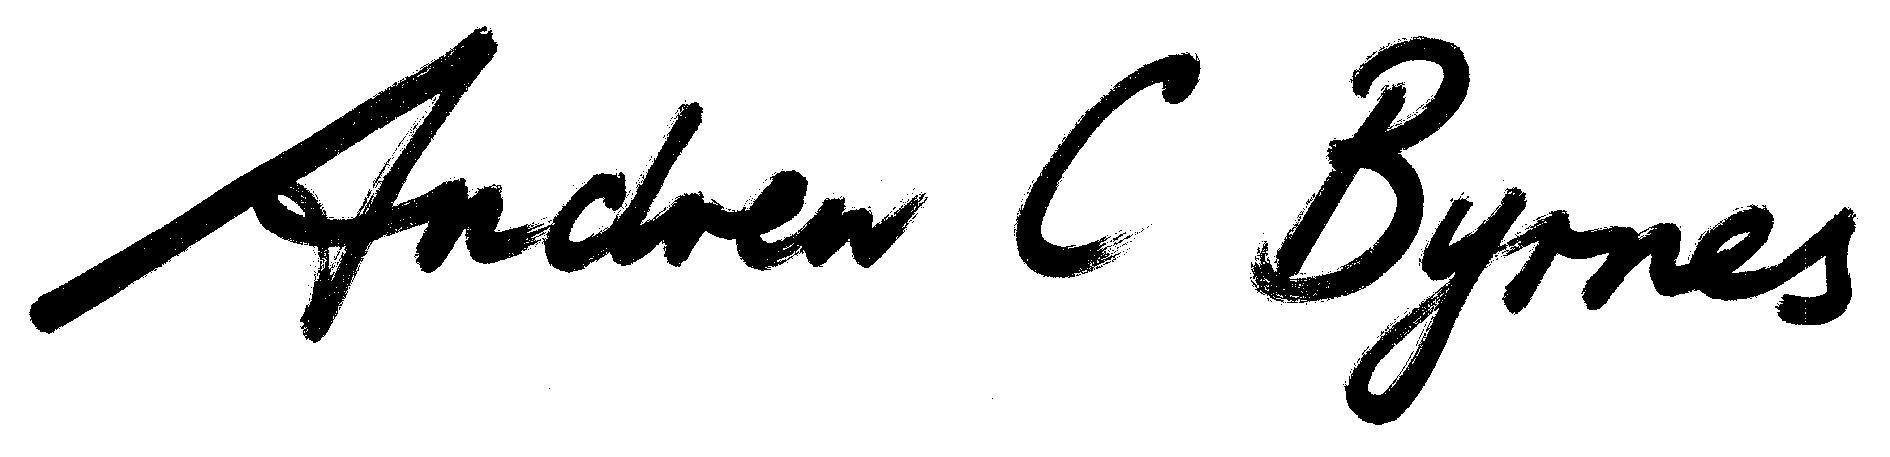 Andrew C Byrnes